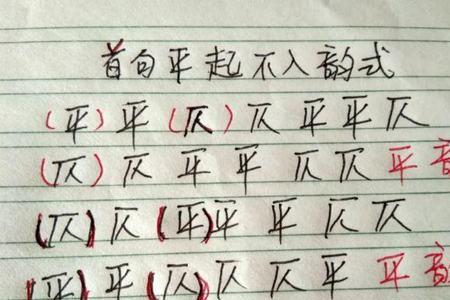 首句平起不入韵式
(平)平(仄)仄平平仄
(仄)仄平平仄仄平韵
(仄)仄(平)平平仄仄
(平)平(仄)仄仄平平韵